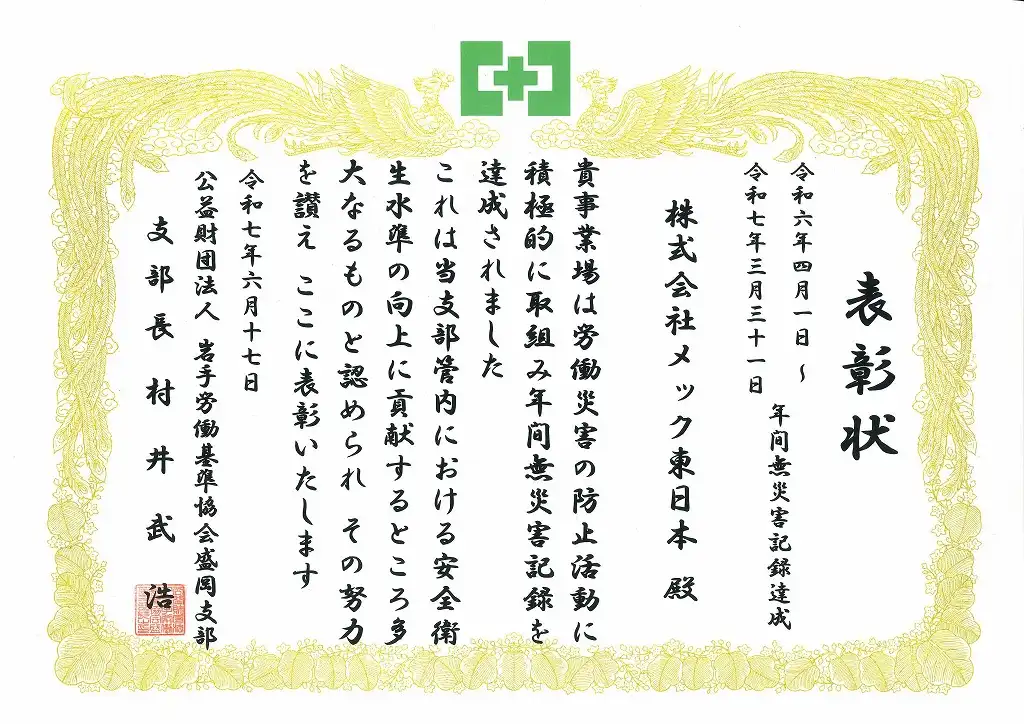 表彰状
令和六年四月一日～
令和七年三月三十一日
年间無災害記録達成
株式会社メック東日本 殿
貴事業場は労働災害の防止活動に
積極的に取組み年间無災害記録を
達成されました
これは当支部管内における安全衛
生水準の向上に貢献するところ多
大なるものと認められ その努力
を讃え ここに表彰いたします
令和七年六月十七日
公益財団法人 岩手労働基準協会盛岡支部
支部長 村井武浩